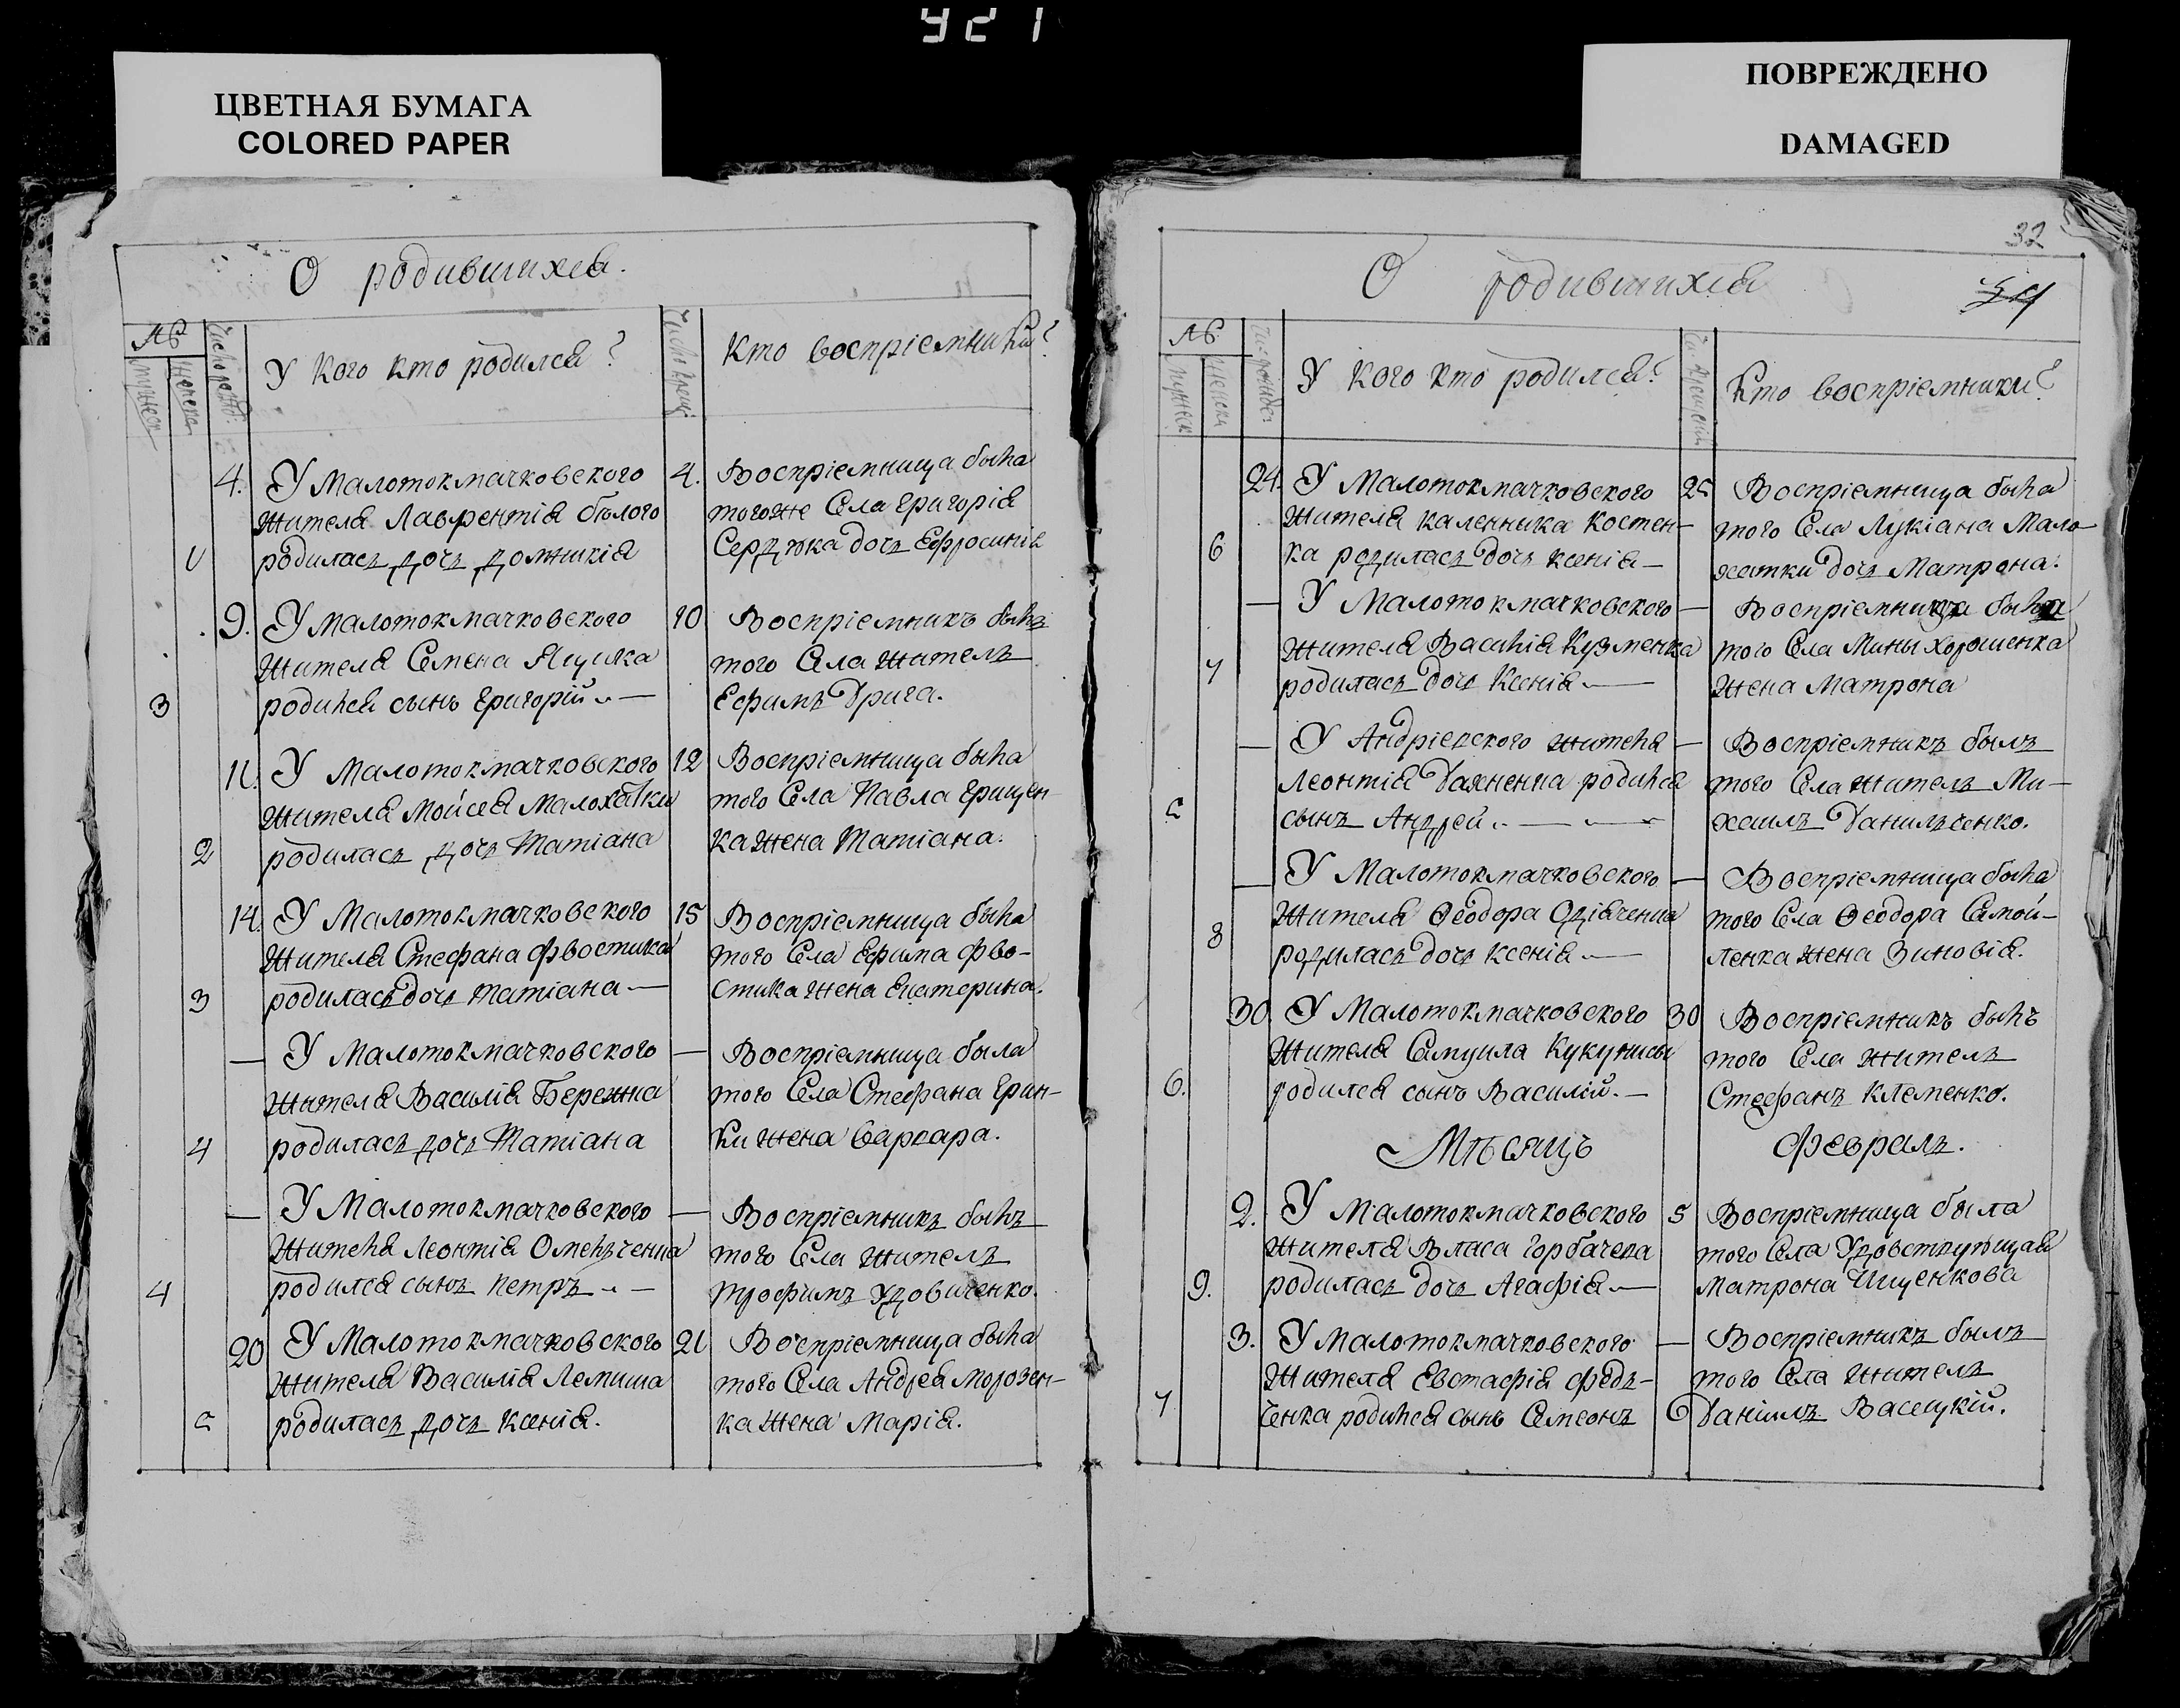 421
ЦВЕТНАЯ БУМАГА
COLORED PAPER
ПОВРЕЖДЕНО
DAMAGED
О родившихся.
№
мужеск
женска
Число рожд:
У кого кто родился?
Число крещ:
Кто воспріемники?
4.
У Малотокмачковского
жителя Лаврентія бѣлого
1
родилась дочь домникія
4.
Воспріемница была
тогоже Села григорія
Сердюка дочь Ефросинія
9.
У Малотокмачковского
жителя Семена Яцика
3
родился сынъ григорій
10
Воспріемникъ былъ
того Села житель
Ефимъ Дрига.
11.
У Малотокмачковского
жителя Мойсея Малохатки
2
родилась дочь Татіана
12
Воспріемница была
того Села Павла грищен-
ка жена Татіана.
14.
У Малотокмачковского
жителя Стефана Фвостика
3
родилась дочь Татіана —
15
Воспріемница была
того Села Ефима Фво-
стика жена Екатерина.
—
У Малотокмачковского
жителя Василія Бережна
4
родилась дочь Татіана
—
Воспріемница была
того Села Стефана грин-
ки жена Варвара.
—
У Малотокмачковского
жителя Леонтія Омельченка
4
родился сынъ петръ —
—
Воспріемникъ былъ
того Села житель
трофимъ Удовиченко.
20
У Малотокмачковского
жителя Василія Лемиша
5
родилась дочь ксенія.
21
Воспріемница была
того Села Андрея морозен-
ка жена Марія.
32
О родившихся
№
мужеск
женска
У кого кто родился?
Кто воспріемники?
24.
У Малотокмачковского
жителя каленника костен-
6
ка родилась дочь ксенія —
25
Воспріемница была
того Села Лукіана Мало-
хатки дочь Матрона.
—
У Малотокмачковского
жителя Василія Кузменка
7
родилась дочь Ксенія —
—
Воспріемница была
того Села Мины хорошенка
жена матрона
—
У Андріевского жителя
Леонтія родился
5
сынъ Андрей —
—
Воспріемникъ былъ
того Села житель Ми-
хаилъ Данильченко.
—
У Малотокмачковского
жителя Ѳеодора
8
родилась дочь ксенія —
—
Воспріемница была
того Села Ѳеодора Самой-
ленка жена Зиновія.
30.
У Малотокмачковского
жителя Самуила
6.
родился сынъ Василій. —
30
Воспріемникъ былъ
того Села житель
Стефанъ клеменко.
Мѣсяцъ Февраль.
2.
У Малотокмачковского
жителя Власа горбачева
9.
родилась дочь Агафія —
5
Воспріемница была
того Села
Матрона Ищенкова
3.
У Малотокмачковского
жителя Евстафія федь-
7
ченка родился сынъ Симеонъ
—
Воспріемникъ былъ
того Села житель
6
Даніилъ Васецкій.